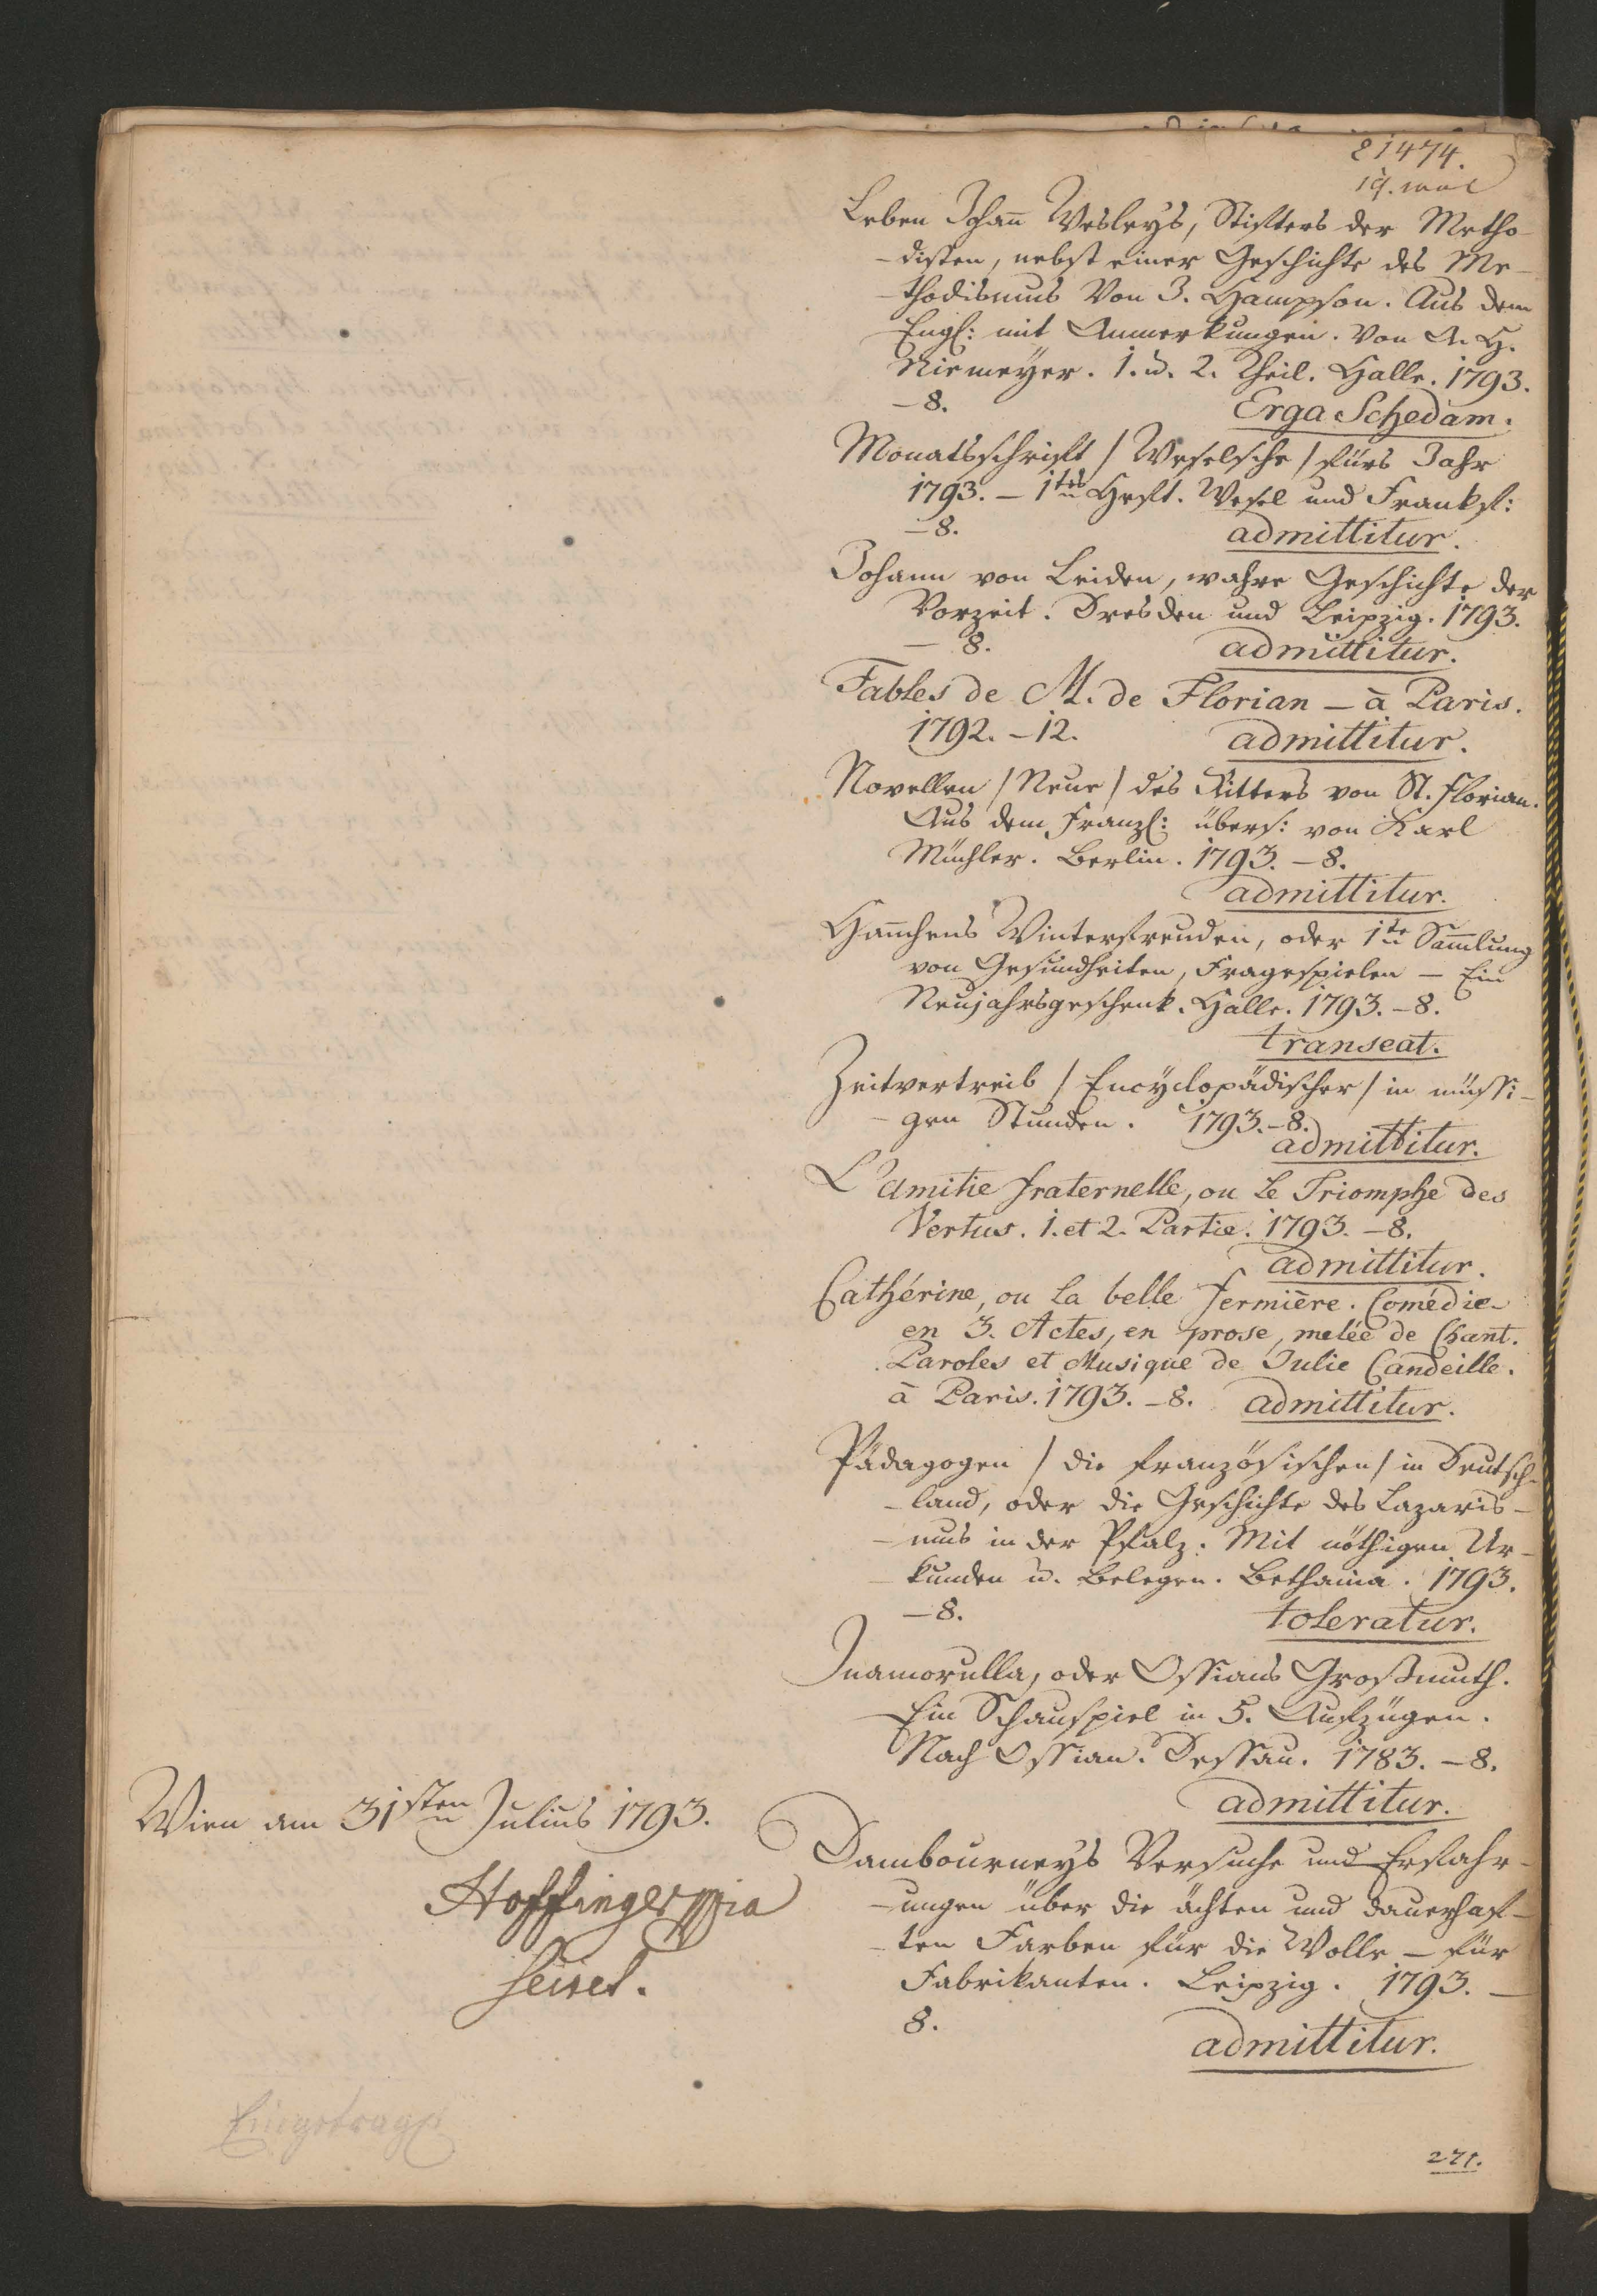 21474.
Leben Johan̄ Wesleys, Stifters der Metho-
-disten, nebst einer Geschichte des Me-
-thodismus Von J. Hampson. Aus dem
Engl: mit Anmerkungen. Von A. H.
Niemeÿer. 1. u. 2. Theil. Halle. 1793.
-8. Erga Schedam.
Monatsschrift / Weselsche / fürs Jahr
1793. – 1tes Heft. Wesel und Frankf:
-8. admittitur.
Johann von Leiden, wahre Geschichte der
Vorzeit. Dresden und Leipzig. 1793.
– 8. admittitur.
Fables de M. de Florian – à Paris.
1792. – 12. admittitur.
Novellen / Neue / des Ritters von St. Florian.
Aus dem Franzſ: übers: von Karl
Müchler. Berlin. 1793. – 8.
admittitur.
Han̄chens Winterfreuden, oder 1te Sam̄lung
von Gesundheiten, Fragespielen – Ein
Neujahrsgeschenk. Halle. 1793. – 8.
transeat.
Zeitvertreib / Encÿclopädischer / in müssi-
-gen Stunden. 1793. – 8.
admittitur.
L'Amitie fraternelle, ou Le Triomphe des
Vertus. 1. et 2. Partie. 1793. – 8.
admittitur.
Cathérine, ou La belle fermière. Comédie
en 3. Actes, en prose, melée de Chant.
Paroles et Musique de Julie Candeille.
à Paris. 1793. – 8. admittitur.
Pädagogen / die französischen / in Deutsch-
-land, oder die Geschichte des Lazaris-
-mus in der Pfalz. Mit nöthigen Ur-
-kunden u. Belegen. Bethania. 1793.
– 8. toleratur.
Inamorulla, oder Ossians Großmuth.
Ein Schauspiel in 5. Aufzügen.
Nach Ossian. Dessau. 1783. – 8.
admittitur.
Dambourneys Versuche und Erfahr-
-ungen über die ächten und dauerhaf-
-ten Farben für die Wolle – für
Fabrikanten. Leipzig. 1793. –
8.
admittitur.
Wien am 31sten Julius 1793.
Hoffinger mpia
Eingetragen
271.